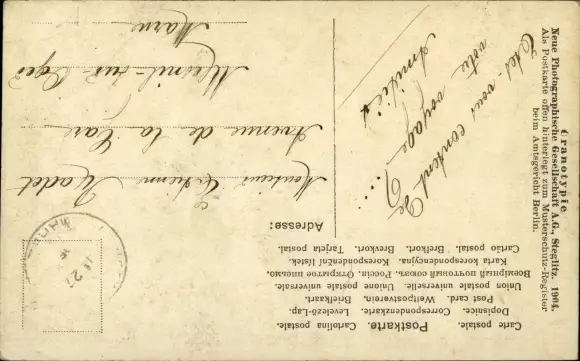 Carte postale. Postkarte. Cartolina postale.
Dopisnice. Correspondenzkarte. Levelező-Lap.
Post card. Weltpostverein. Briefkaart.
Union postale universelle. Unione postale universale.
Всемірный почтовый союзъ, Россія, Открытое письмо.
Karta korespondencyjna. Korespondenční lístek.
Cartão postal. Brefkort. Brevkort. Tarjeta postal.
Adresse:
Monsieur Etienne Hadet
Avenue de la Gare
Mesnil-sur-Oger
Marne
Etes-vous content de
votre voyage ?...
Amitiés
Granotypie
Neue Photographische Gesellschaft A.G., Steglitz. 1904.
Als Postkarte offen hinterlegt zum Musterschutz-Register
beim Amtsgericht Berlin.